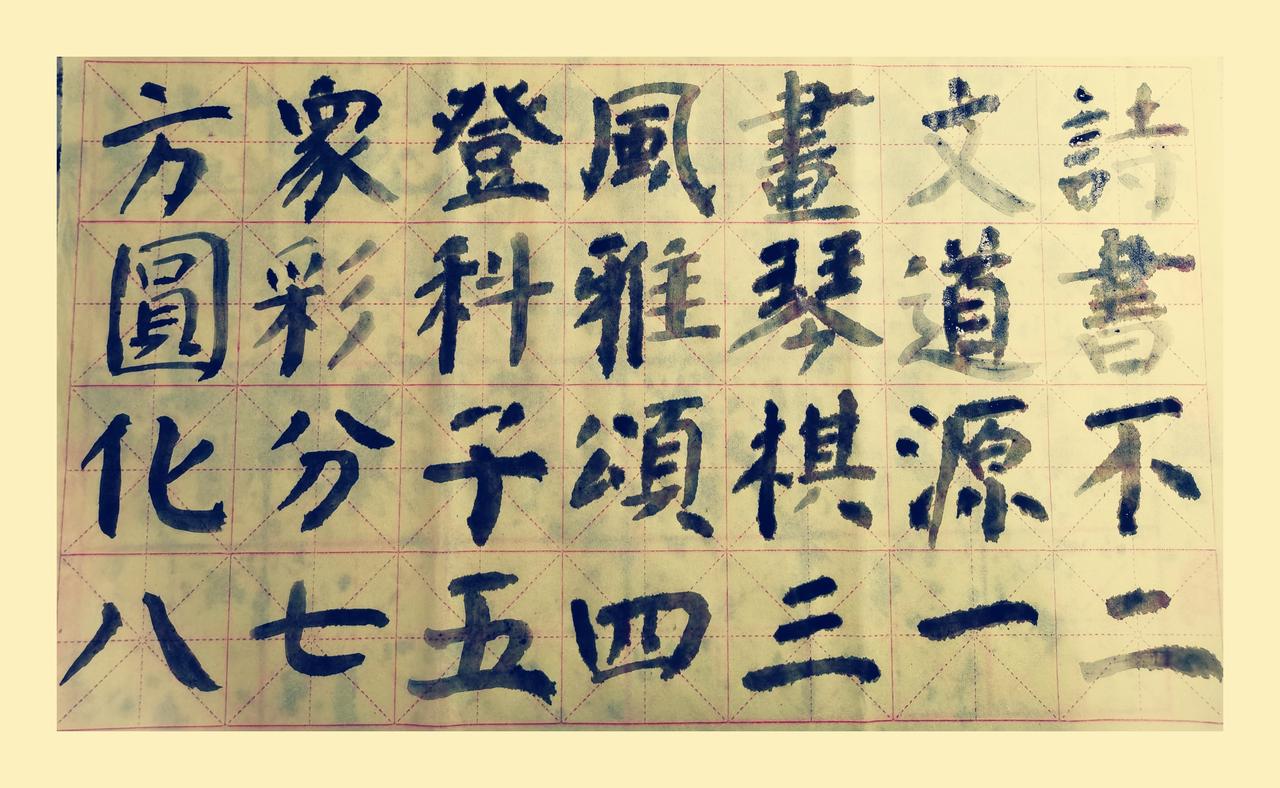 詩書不二
文道源一
畫琴棋三
風雅頌四
登科子五
衆彩分七
方圓化八